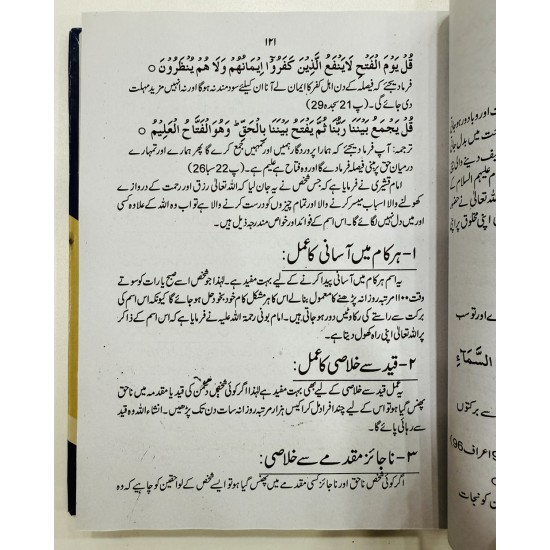 ۱۲۱
قُلْ يَوْمَ الْفَتْحِ لَايَنْفَعُ الَّذِيْنَ كَفَرُوْٓا اِيْمَانُهُمْ وَلَا هُمْ يُنْظَرُوْنَ ○
فرما دیجئے کہ فیصلہ کے دن اہل کفر کا ایمان لے آنا ان کیلئے سود مند نہ ہو گا اور نہ انہیں مزید مہلت
دی جائے گی۔ (پ21 سجدہ 29)
قُلْ يَجْمَعُ بَيْنَنَا رَبُّنَا ثُمَّ يَفْتَحُ بَيْنَنَا بِالْحَقِّ ؕ وَهُوَ الْفَتَّاحُ الْعَلِيْمُ ○
ترجمہ: آپ فرما دیجئے کہ ہمارا پروردگار ہمیں اور تمہیں جمع کرے گا پھر ہمارے اور تمہارے
درمیان حق پر مبنی فیصلہ فرما دے گا اور وہ فتاح ہے علیم ہے۔ (پ22 سبا 26)
امام قشیری نے فرمایا ہے کہ جس شخص نے یہ جان لیا کہ اللہ تعالیٰ رزق اور رحمت کے دروازے
کھولنے والا اسباب میسر کرنے والا اور تمام چیزوں کو درست کرنے والا ہے تو اب وہ اللہ کے علاوہ کسی
اور میں دل نہیں لگائے گا۔ اس اسم کے فوائد اور خواص مندرجہ ذیل ہیں۔
۱- ہر کام میں آسانی کا عمل:
یہ اسم ہر کام میں آسانی پیدا کرنے کے لیے بہت مفید ہے۔ لہٰذا جو شخص اسے صبح یا رات کو سوتے
وقت ۱۱۰۰ مرتبہ روزانہ پڑھنے کا معمول بنا لے اس کا ہر مشکل کام خود بخود حل ہو جائے گا کیونکہ اس اسم کی
برکت سے راستے کی رکاوٹیں دور ہو جاتی ہیں۔ امام بونی رحمۃ اللہ علیہ نے فرمایا ہے کہ اس اسم کے ذاکر
پر اللہ تعالیٰ اپنی راہ کھول دیتا ہے۔
۲- قید سے خلاصی کا عمل:
یہ عمل قید سے خلاصی کے لیے بھی بہت مفید ہے لہٰذا اگر کوئی شخص دشمن کی قید یا مقدمہ میں ناحق
پھنس گیا ہو تو اس کے لیے چند افراد مل کر اکیس ہزار مرتبہ روزانہ سات دن تک پڑھیں۔ انشاء اللہ وہ قید
سے رہائی پائے گا۔
۳- ناجائز مقدمے سے خلاصی:
اگر کوئی شخص ناحق اور ناجائز کسی مقدمے میں پھنس گیا ہو تو ایسے شخص کے لواحقین کو چاہیے کہ وہ
اور وبا دور ہو جاتی
میں بدل جاتی
علیہم السلام کے
اللہ تعالیٰ نے حضور
اپنی مخلوق پر اپنی
اور تو سب
السَّمَآءِ
سے برکتوں
اعراف 96)
کو نجات